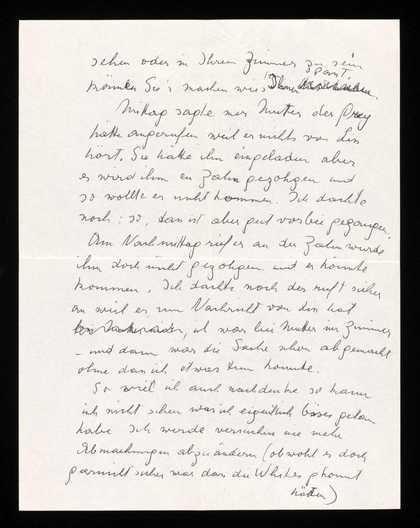 sehen oder in Ihrem Zimmer zu sein
passt
könnten Sie's machen wie's Ihnen
Mittag sagte mir Mutter der Prey
hätte angerufen weil er nichts von Lin
hört. Sie hatte ihn eingeladen aber
es wird ihm ein Zahn gezohgen und
so wollte er nicht kommen. Ich dachte
noch: so, dan ist aber gut vorbei gegangen.
Am Nachmittag rief er an der Zahn wurde
ihm doch nicht gezohgen und er könnte
kommen. Ich dachte noch der ruft sicher
an weil er nun Nachricht von Lin hat
ich war bei Mutter im Zimmer
– und dann war die Sache schon abgemacht
ohne dass ich etwas tun konnte.
So viel ich auch nachdenke so kann
ich nicht sehen was ich eigentlich böses getan
habe. Ich werde versuchen nie mehr
Abmachungen abzuändern (obwohl es doch
garnicht sicher war dass die Whites gkommt
hätten)